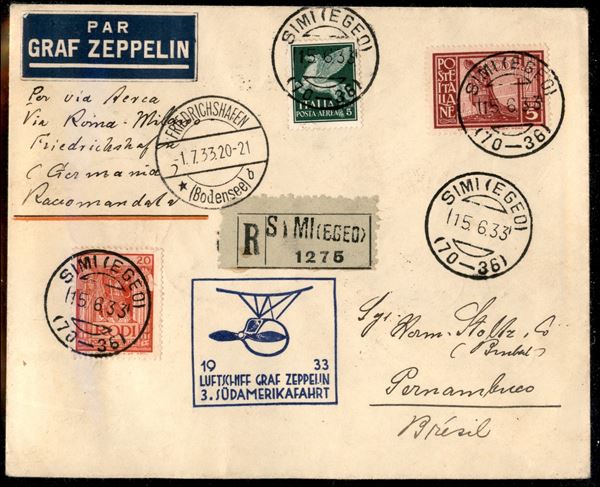 PAR
GRAF ZEPPELIN
Per via Aerea
Via Roma-Milano
Friedrichshafen
(Germania
Raccomandata
SIMI (EGEO)
15.6.33
(70-36)
ITALIA
POSTA AEREA 5
SIMI (EGEO)
15.6.33
(70-36)
POSTE
ITALIANE
5
FRIEDRICHSHAFEN
-1.7.33.20-21
★ (Bodensee) b
SIMI (EGEO)
15.6.33
(70-36)
R SIMI (EGEO)
1275
SIMI (EGEO)
15.6.33
(70-36)
20
RODI
19 33
LUFTSCHIFF GRAF ZEPPELIN
3. SÜDAMERIKAFAHRT
Herm. Stoltz Co
Pernambuco
Brésil